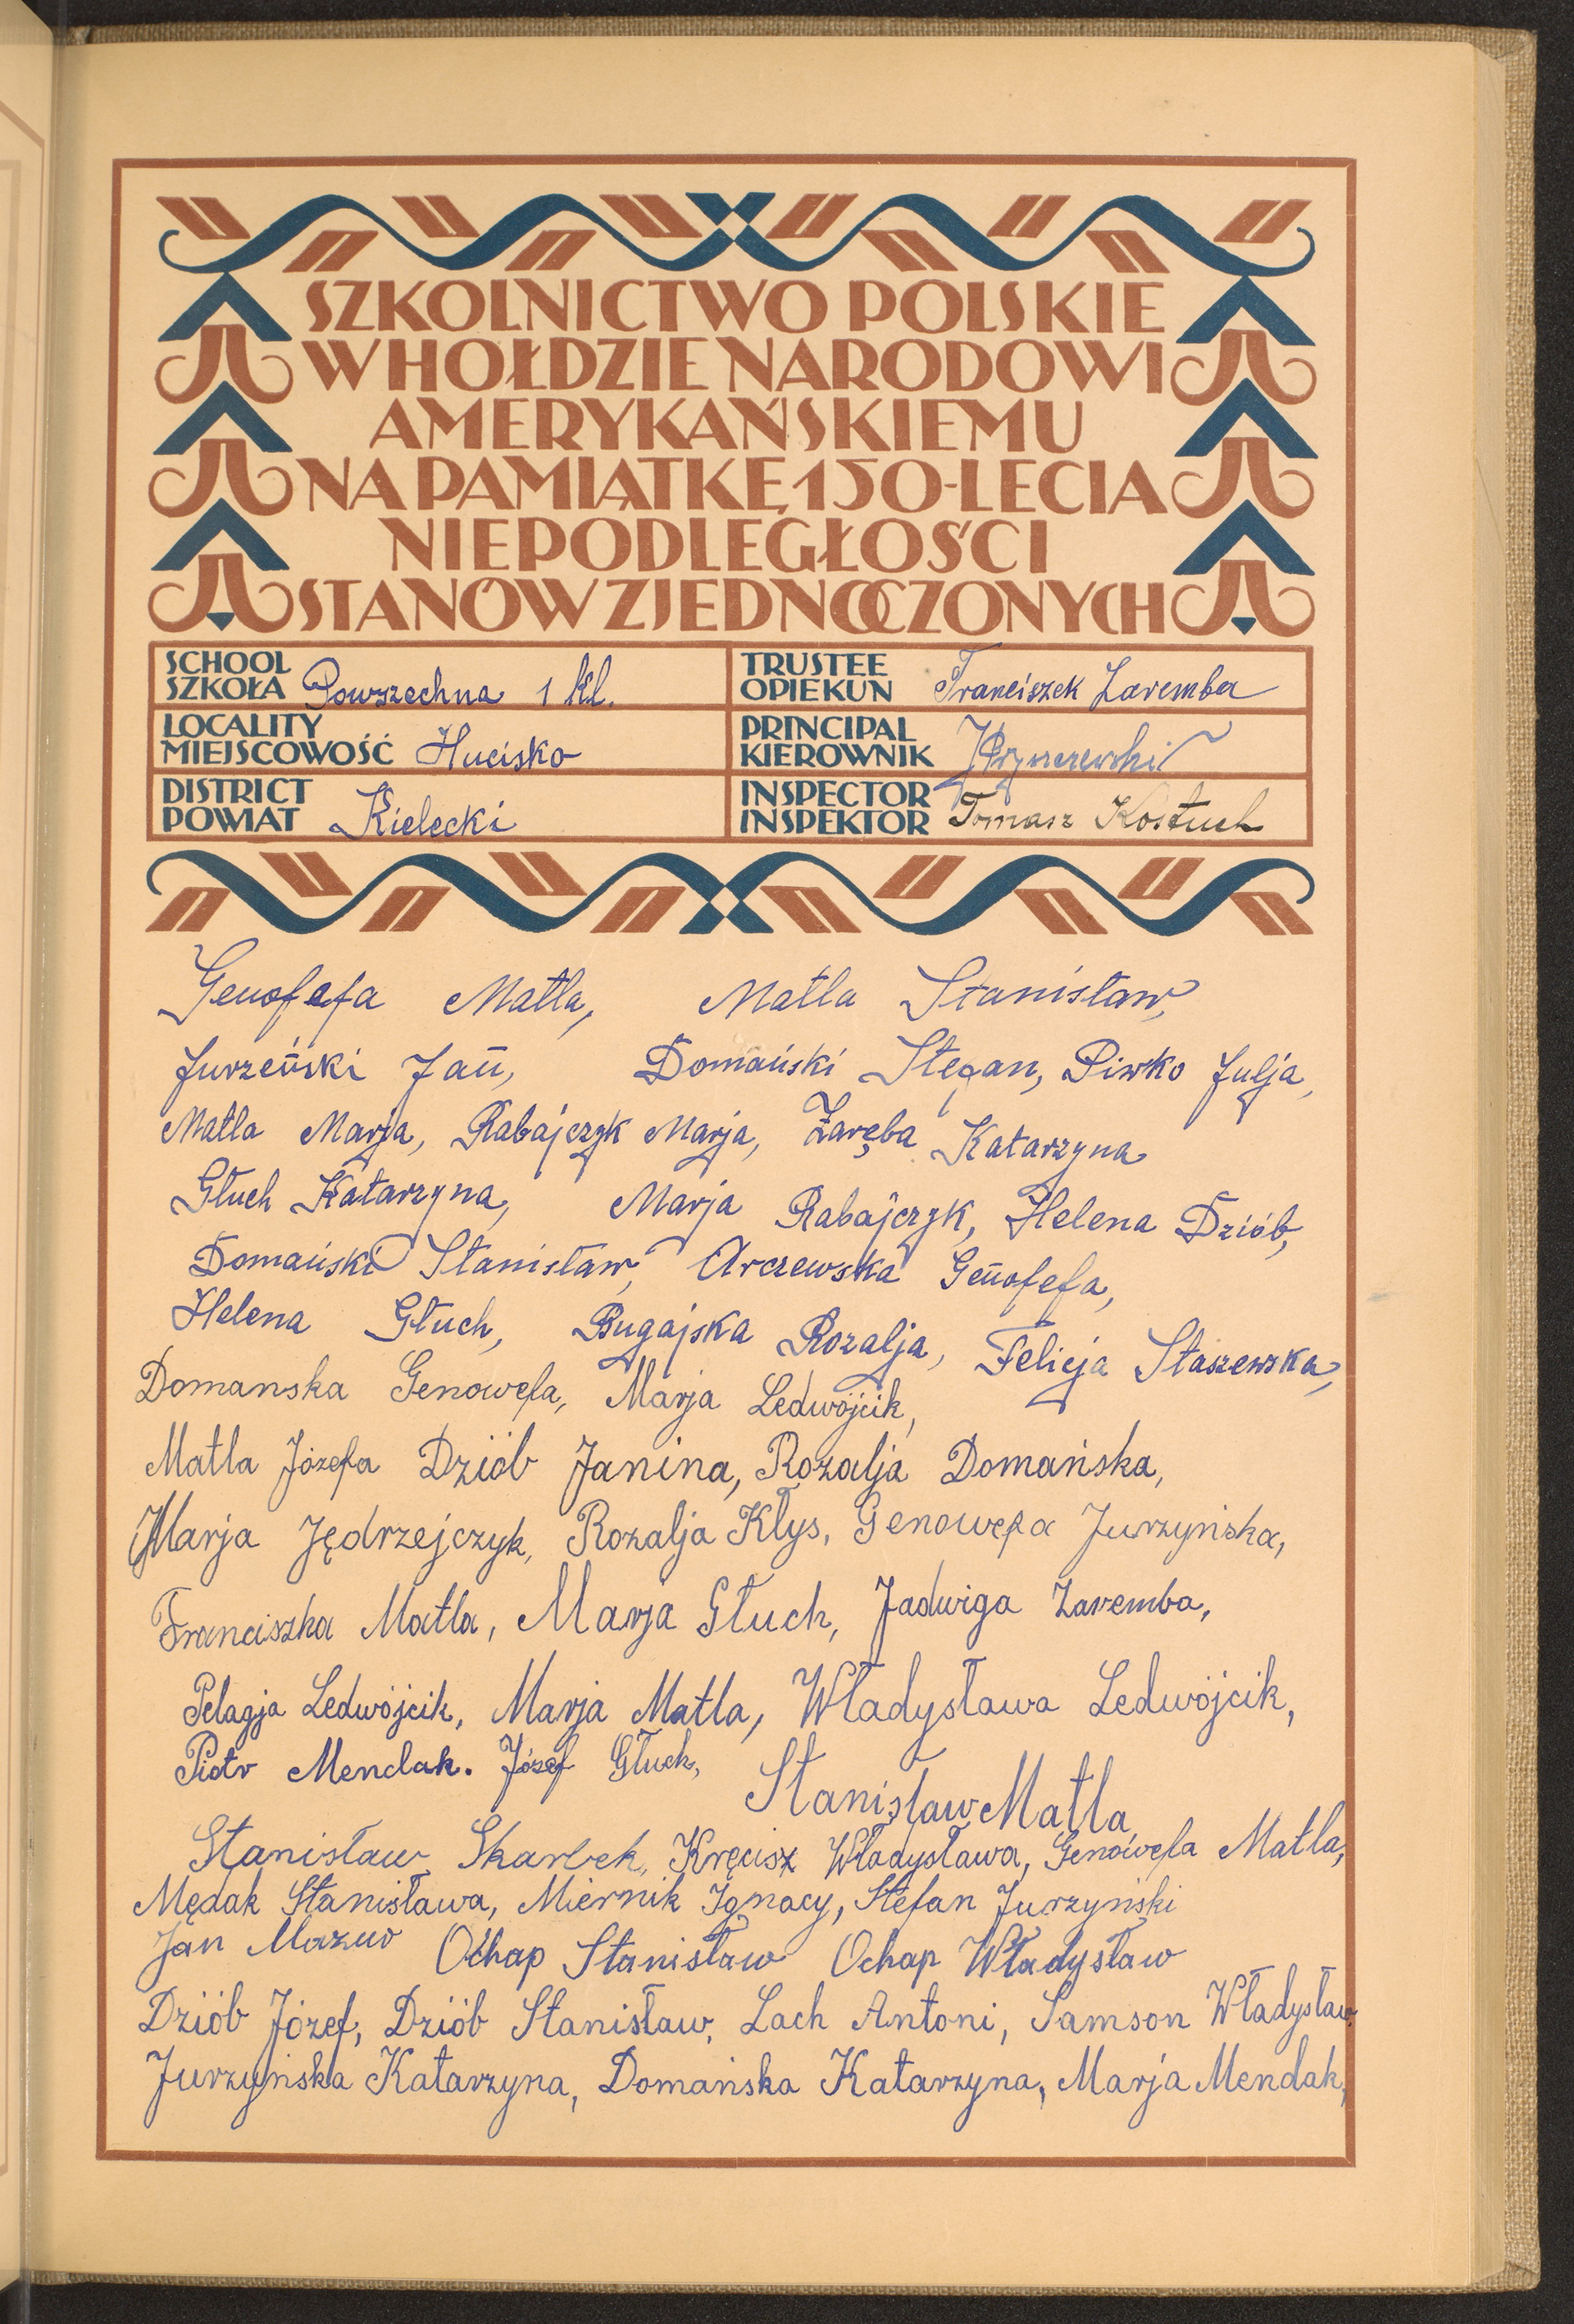 SZKOLNICTWO POLSKIE
W HOŁDZIE NARODOWI
AMERYKAŃSKIEMU
NA PAMIĄTKĘ 150-LECIA
NIEPODLEGŁOŚCI
STANÓW ZJEDNOCZONYCH
SCHOOL
SZKOŁA Powszechna 1 kl.
TRUSTEE
OPIEKUN Franciszek Zaremba
LOCALITY
MIEJSCOWOŚĆ Hucisko
PRINCIPAL
KIEROWNIK
DISTRICT
POWIAT Kielecki
INSPECTOR
INSPEKTOR Tomasz Kostuch
Genofefa Matla, Matla Stanisław,
Jurzeński Jan, Domański Stefan, Piwko Julja,
Matla Marja, Rabajczyk Marja, Zaręba Katarzyna
Głuch Katarzyna, Marja Rabajczyk, Helena Dziób,
Domański Stanisław, Arczewska Genofefa,
Helena Głuch, Bugajska Rozalja, Felicja Staszewska,
Domanska Genowefa, Marja Ledwójcik,
Matla Józefa Dziób Janina, Rozalja Domańska,
Marja Jędrzejczyk, Rozalja Kłys, Genowefa Jurzyńska,
Franciszka Matla, Marja Głuch, Jadwiga Zaremba,
Pelagja Ledwójcik, Marja Matla, Władysława Ledwójcik,
Piotr Mendak. Józef Głuch, Stanisław Matla
Stanisław Skarbek, Kręcisz Władysława, Genowefa Matla,
Mędak Stanisława, Miernik Ignacy, Stefan Jurzyński
Jan Mazur Ochap Stanisław Ochap Władysław
Dziób Józef, Dziób Stanisław, Lach Antoni, Samson Władysław,
Jurzyńska Katarzyna, Domańska Katarzyna, Marja Mendak,